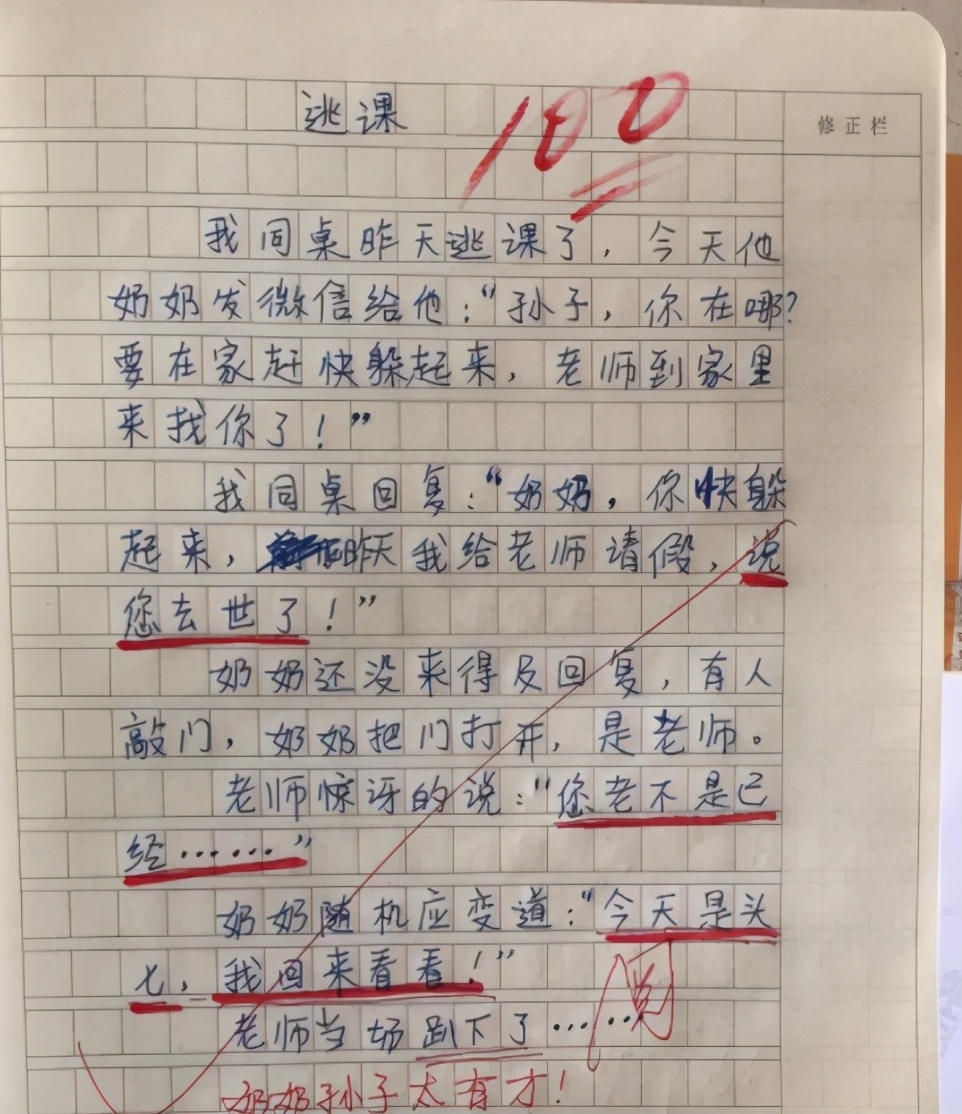 逃课
100
修正栏
我同桌昨天逃课了，今天他
奶奶发微信给他：“孙子，你在哪？
要在家赶快躲起来，老师到家里
来找你了！”
我同桌回复：“奶奶，你快躲
起来，昨天我给老师请假，说
您去世了！”
奶奶还没来得及回复，有人
敲门，奶奶把门打开，是老师。
老师惊讶的说：“您老不是已
经……”
奶奶随机应变道：“今天是头
七，我回来看看！”
老师当场趴下了……
阅
奶奶孙子太有才！